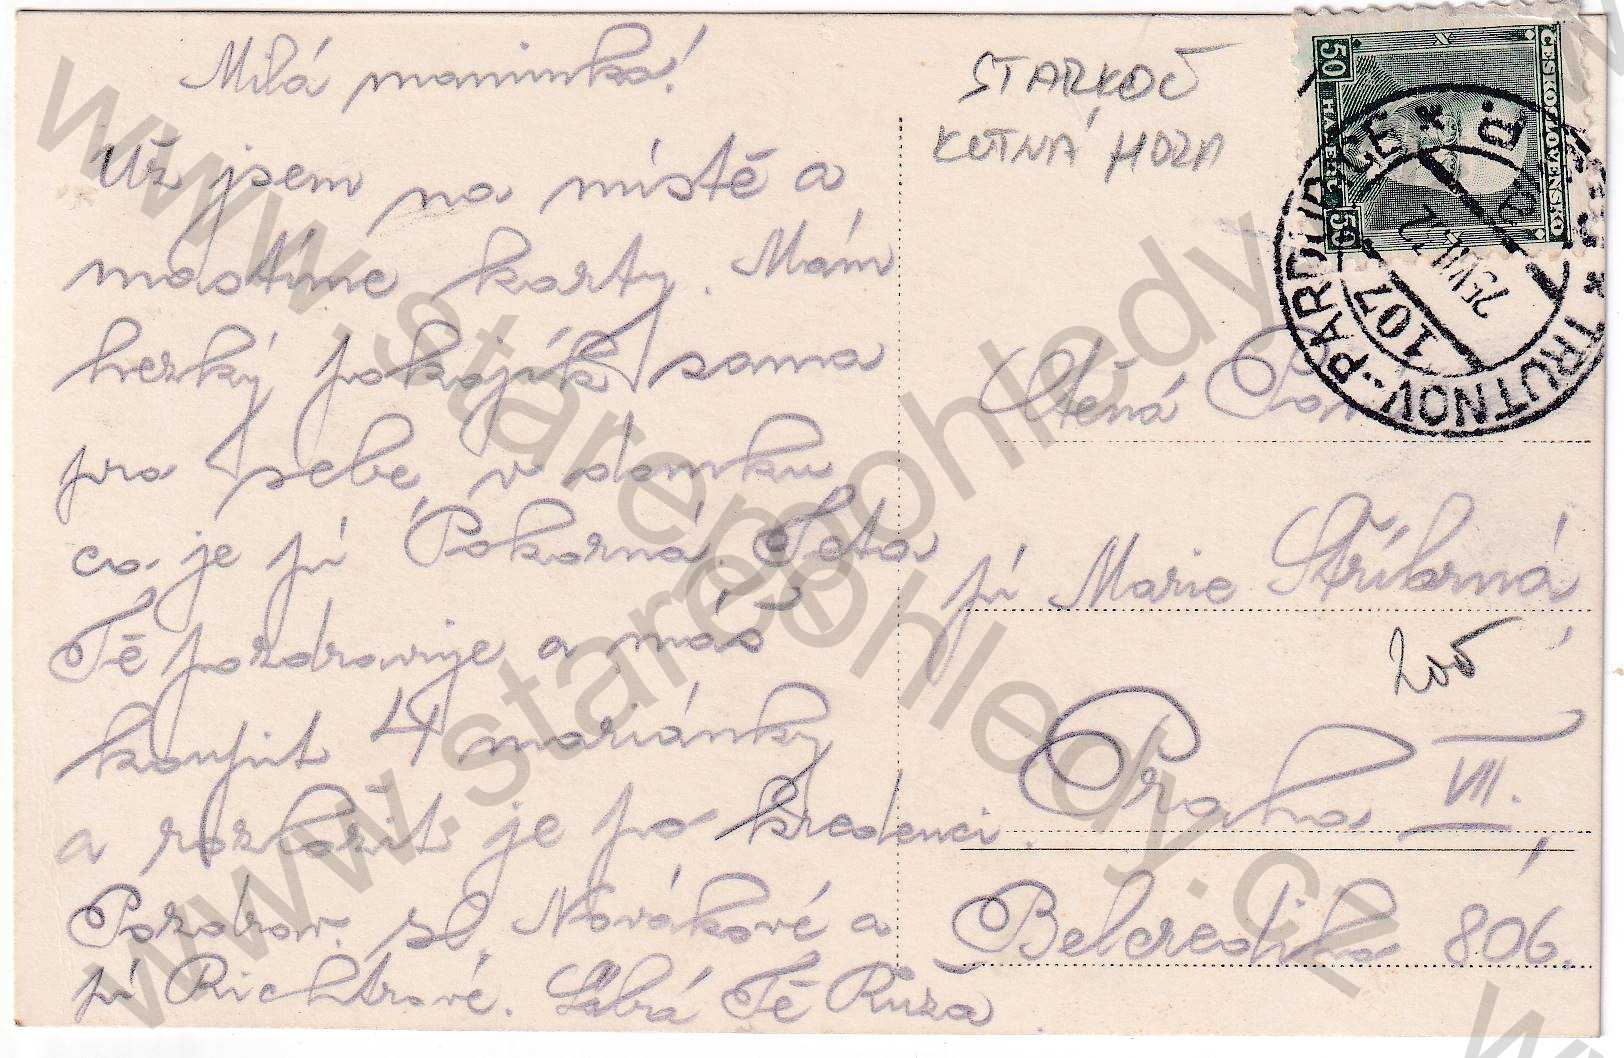 Milá maminko!
Už jsem na místě a
mastíme karty. Mám
hezký pokojík sama
pro sebe v domku
co je pí Pokorná. Teta
Tě pozdravuje a máš
koupit 4 mariánky
a rozložit je po kredenci.
Pozdrav. sl. Novákové a
pí Richtrové. Líbá Tě Růža
STARKOČ
KUTNÁ HORA
ČESKOSLOVENSKO
50 50
TRUTNOV - PARDUBICE
107
Ctěná
pí Marie Stříbrná
200
Praha VII.
Belcrediho 806.
www.starepohledy.cz
www.starepohledy.cz